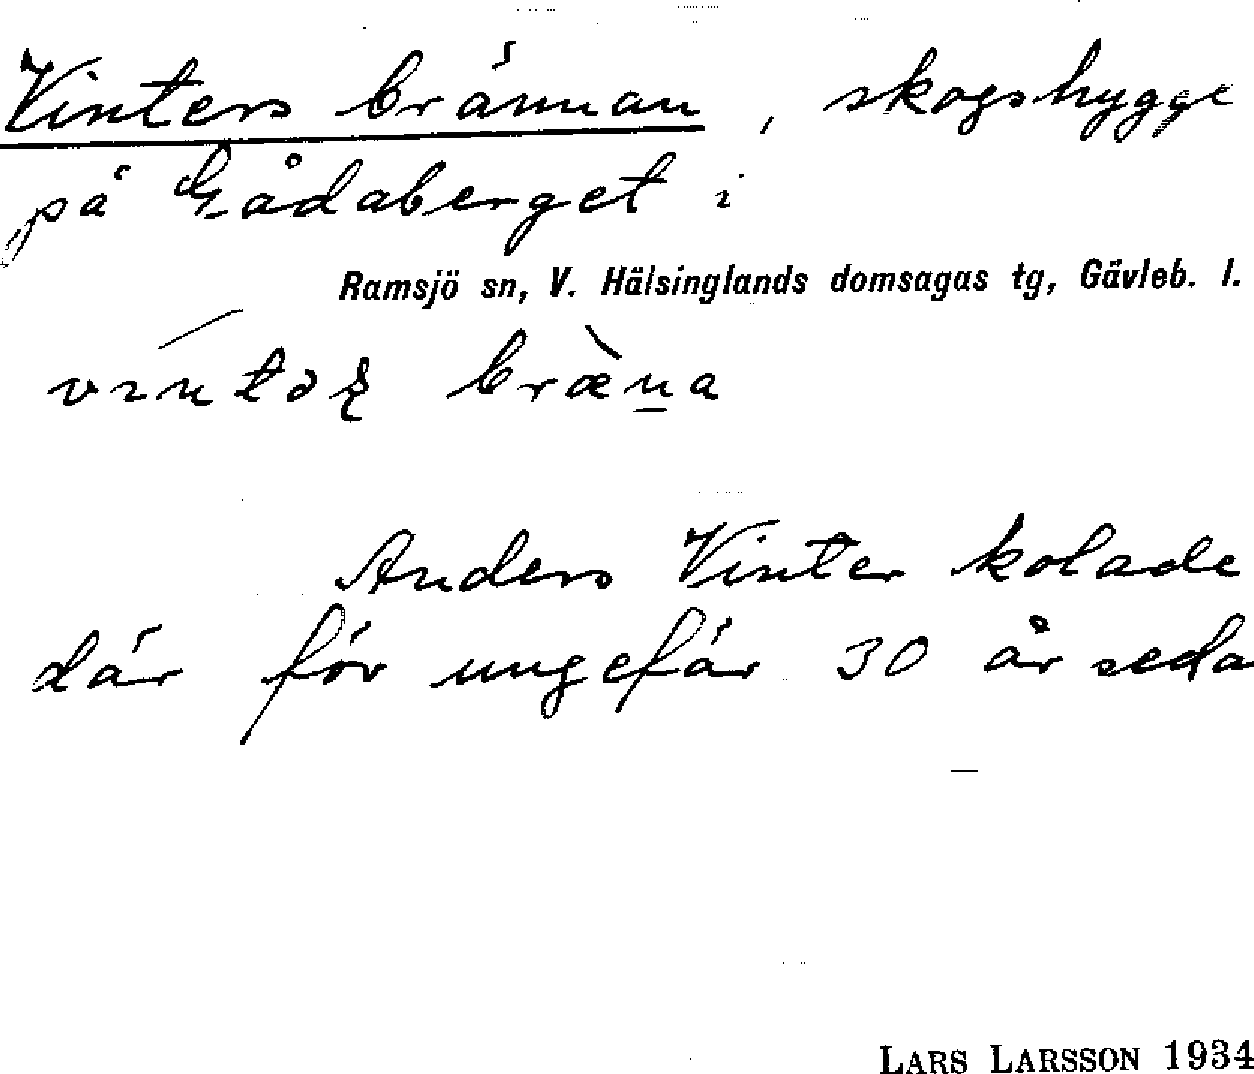 Vintersbrännan, skogshygge
på Gådaberget i
Ramsjö sn, V. Hälsinglands domsagas tg, Gävleb. l.
Anders Vinter kolade
där för ungefär 30 år seda
LARS LARSSON 1934